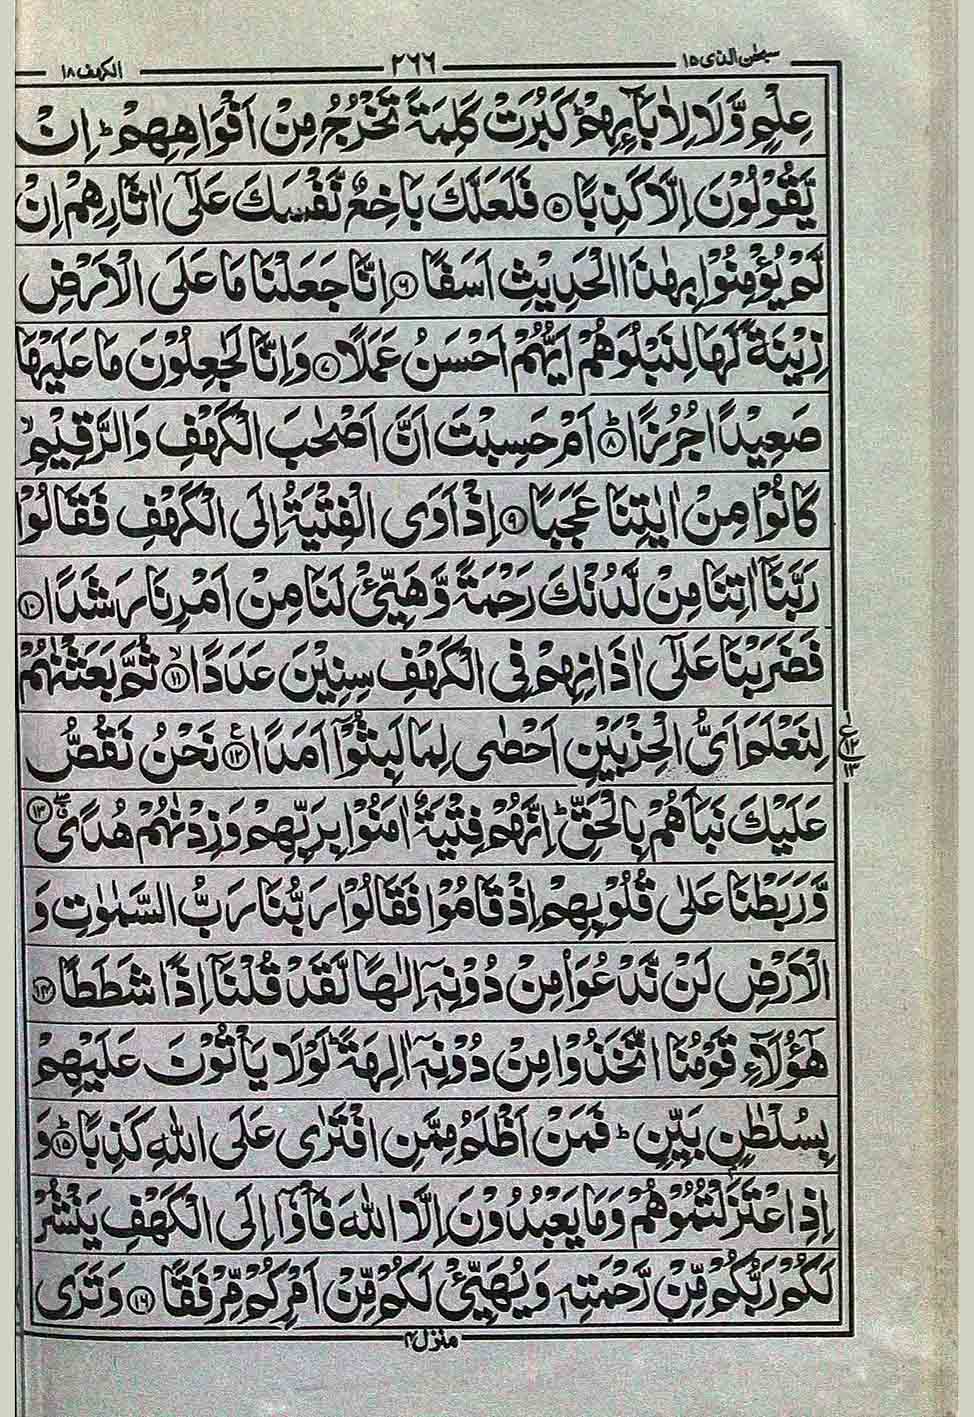 سبحٰن الذی ۱۵
۲۶۶
الکهف ۱۸
عِلۡمٍ وَّلَا لِاٰبَآئِهِمۡ ؕ كَبُرَتۡ كَلِمَةً تَخۡرُجُ مِنۡ اَفۡوَاهِهِمۡ ؕ اِنۡ
يَّقُوۡلُوۡنَ اِلَّا كَذِبًا ۵ فَلَعَلَّكَ بَاخِعٌ نَّفۡسَكَ عَلٰٓى اٰثَارِهِمۡ اِنۡ
لَّمۡ يُؤۡمِنُوۡا بِهٰذَا الۡحَدِيۡثِ اَسَفًا ۶ اِنَّا جَعَلۡنَا مَا عَلَى الۡاَرۡضِ
زِيۡنَةً لَّهَا لِنَبۡلُوَهُمۡ اَيُّهُمۡ اَحۡسَنُ عَمَلًا ۷ وَاِنَّا لَجٰعِلُوۡنَ مَا عَلَيۡهَا
صَعِيۡدًا جُرُزًا ؕ ۸ اَمۡ حَسِبۡتَ اَنَّ اَصۡحٰبَ الۡكَهۡفِ وَالرَّقِيۡمِ ۙ
كَانُوۡا مِنۡ اٰيٰتِنَا عَجَبًا ۹ اِذۡ اَوَى الۡفِتۡيَةُ اِلَى الۡكَهۡفِ فَقَالُوۡا
رَبَّنَاۤ اٰتِنَا مِنۡ لَّدُنۡكَ رَحۡمَةً وَّهَيِّئۡ لَنَا مِنۡ اَمۡرِنَا رَشَدًا ۱۰
فَضَرَبۡنَا عَلٰٓى اٰذَانِهِمۡ فِى الۡكَهۡفِ سِنِيۡنَ عَدَدًا ۙ ۱۱ ثُمَّ بَعَثۡنٰهُمۡ
لِنَعۡلَمَ اَىُّ الۡحِزۡبَيۡنِ اَحۡصٰى لِمَا لَبِثُوۡۤا اَمَدًا ۱۲ ع نَحۡنُ نَقُصُّ
ع ۱۲ ۱۳
عَلَيۡكَ نَبَاَهُمۡ بِالۡحَقِّ ؕ اِنَّهُمۡ فِتۡيَةٌ اٰمَنُوۡا بِرَبِّهِمۡ وَزِدۡنٰهُمۡ هُدًى ۱۳
وَّرَبَطۡنَا عَلٰى قُلُوۡبِهِمۡ اِذۡ قَامُوۡا فَقَالُوۡا رَبُّنَا رَبُّ السَّمٰوٰتِ وَ
الۡاَرۡضِ لَنۡ نَّدۡعُوَا۟ مِنۡ دُوۡنِهٖۤ اِلٰهًا لَّقَدۡ قُلۡنَاۤ اِذًا شَطَطًا ۱۴
هٰٓؤُلَآءِ قَوۡمُنَا اتَّخَذُوۡا مِنۡ دُوۡنِهٖۤ اٰلِهَةً ؕ لَوۡلَا يَاۡتُوۡنَ عَلَيۡهِمۡ
بِسُلۡطٰنٍۢ بَيِّنٍ ؕ فَمَنۡ اَظۡلَمُ مِمَّنِ افۡتَرٰى عَلَى اللّٰهِ كَذِبًا ؕ ۱۵ وَ
اِذِ اعۡتَزَلۡتُمُوۡهُمۡ وَمَا يَعۡبُدُوۡنَ اِلَّا اللّٰهَ فَاۡوٗۤا اِلَى الۡكَهۡفِ يَنۡشُرۡ
لَكُمۡ رَبُّكُمۡ مِّنۡ رَّحۡمَتِهٖ وَيُهَيِّئۡ لَكُمۡ مِّنۡ اَمۡرِكُمۡ مِّرۡفَقًا ۱۶ وَتَرَى
منزل ۴